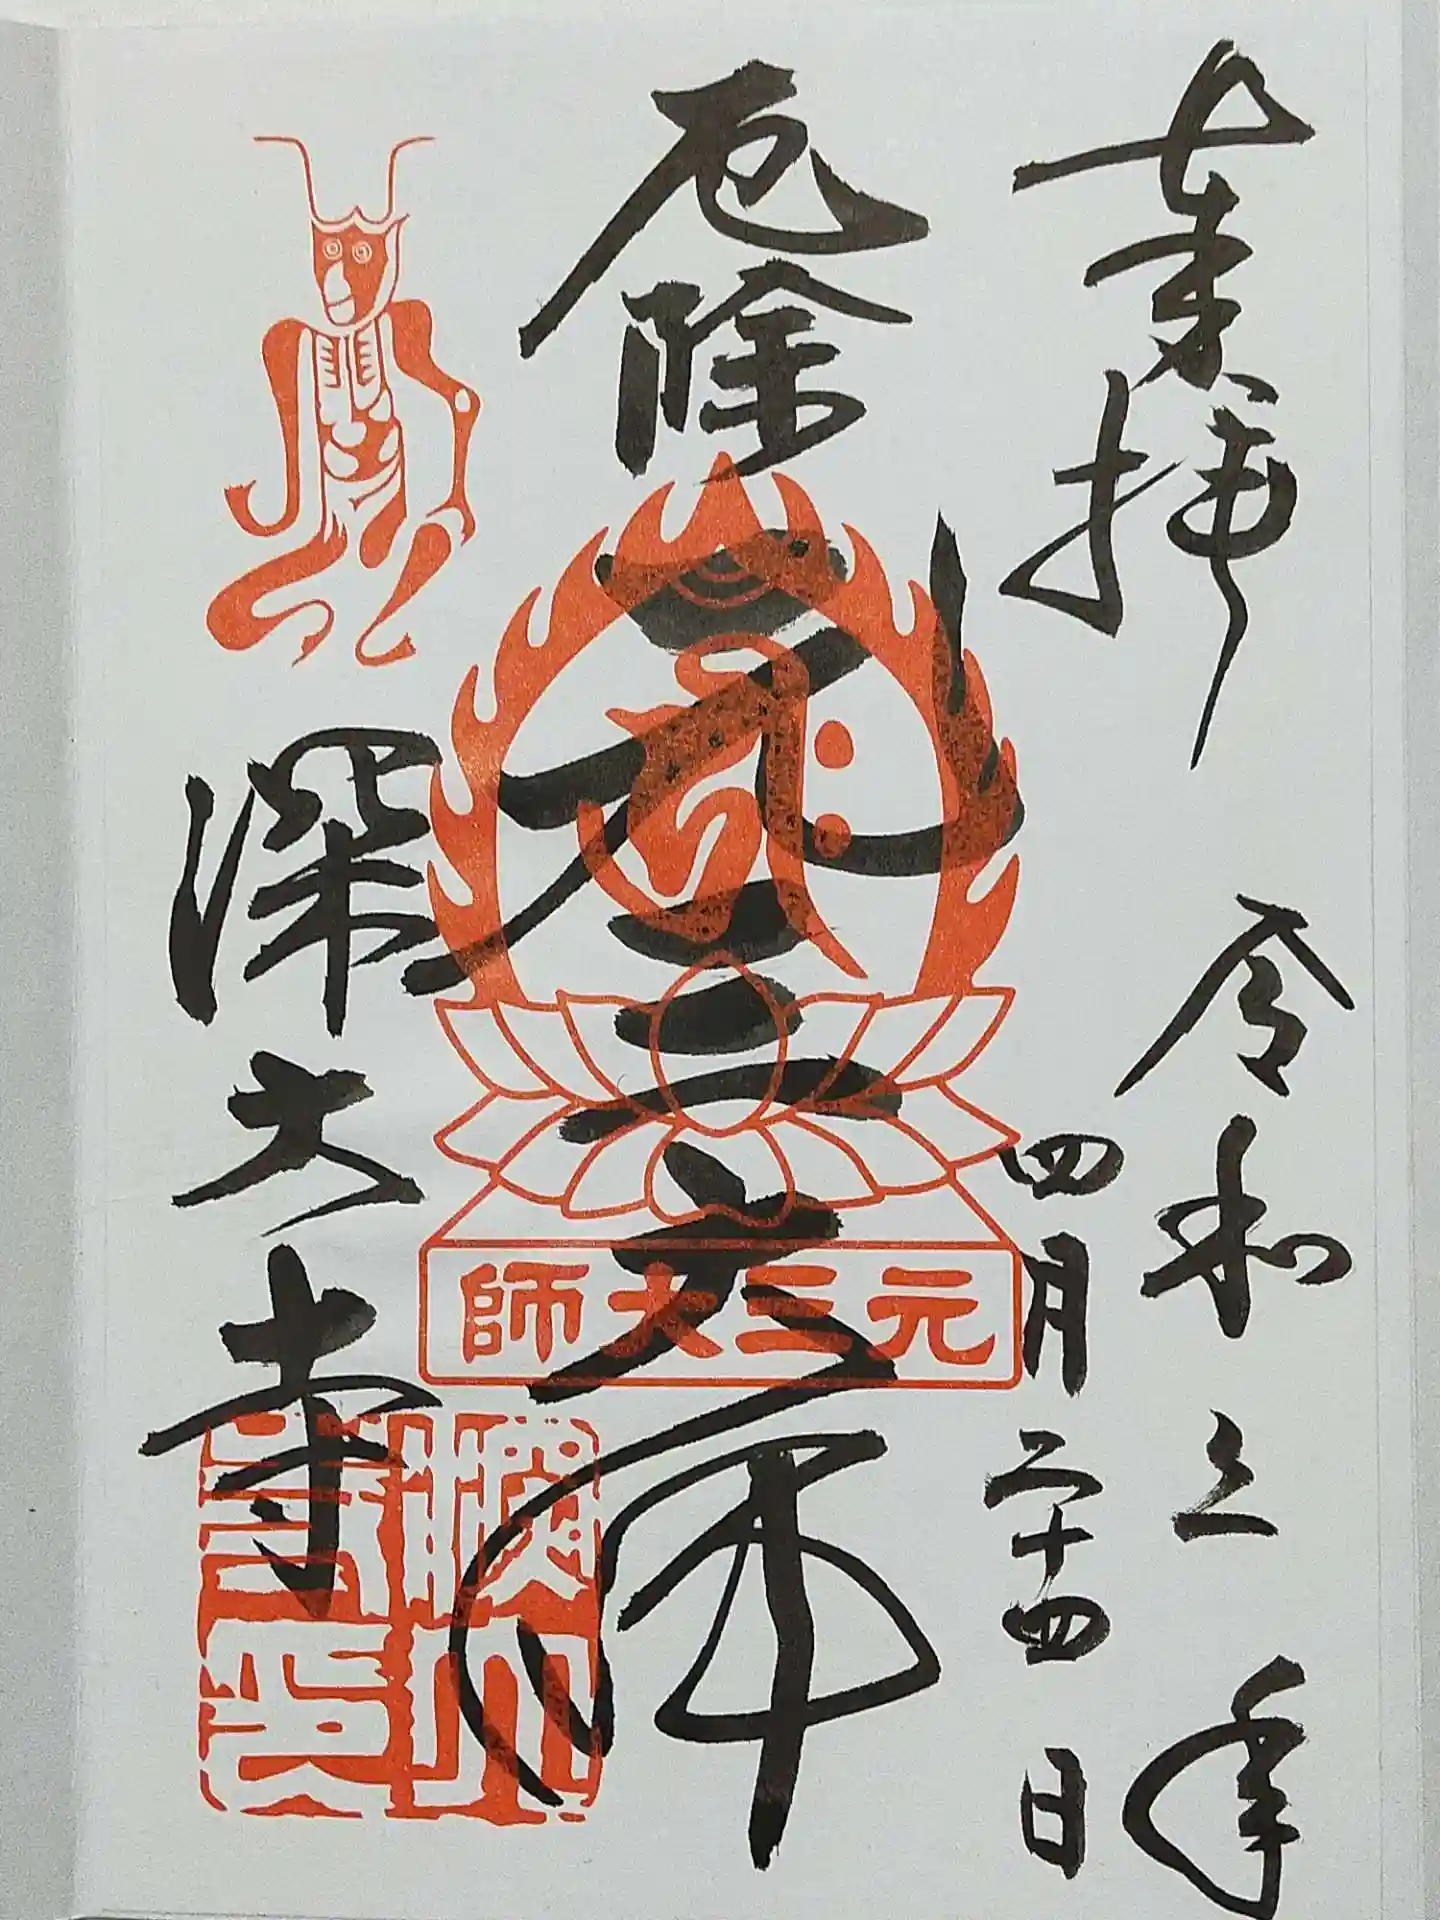 奉拝 令和三年
四月二十四日
厄除 元三大師
元三大師
深大寺